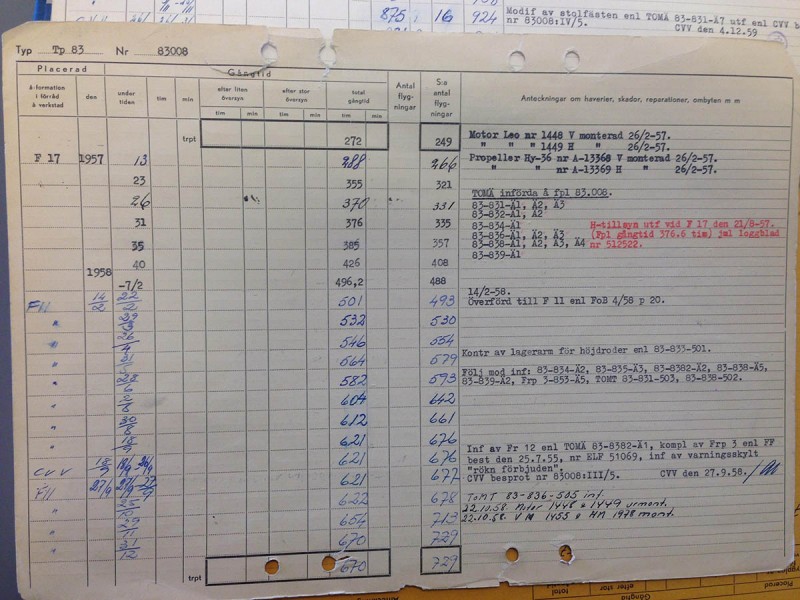 875 16 924
Modif av stolfästen enl TOMÄ 83-831-Ä7 utf enl CVV b
nr 83008:IV/5. CVV den 4.12.59
Typ Tp 83 Nr 83008
Placerad
Gångtid
å-formation i förråd å verkstad
den
under tiden
tim
min
efter liten översyn
tim
min
efter stor översyn
tim
min
total gångtid
tim
min
Antal flygningar
S:a antal flygningar
Anteckningar om haverier, skador, reparationer, ombyten m m
trpt 272 249
Motor Leo nr 1448 V monterad 26/2-57.
" " " 1449 H " 26/2-57.
F 17 1957 13 288 266
Propeller Hy-36 nr A-13368 V monterad 26/2-57.
" " nr A-13369 H " 26/2-57.
23 355 321
TOMÄ införda å fpl 83.008.
26 370 331
83-831-Ä1, Ä2, Ä3
83-832-Ä1, Ä2
31 376 335
83-834-Ä1
83-836-Ä1, Ä2, Ä3
83-838-Ä1, Ä2, Ä3, Ä4
83-839-Ä1
H-tillsyn utf vid F 17 den 21/8-57.
(Fpl gångtid 376.6 tim) jml loggblad
nr 512522.
35 385 357
40 426 408
1958 -7/2 496,2 488
14/2-58.
Överförd till F 11 enl FoB 4/58 p 20.
F11 14/2 22/2 501 493
" 532 530
" 546 554
Kontr av lagerarm för höjdroder enl 83-833-501.
" 564 579
Följ mod inf: 83-834-Ä2, 83-835-Ä3, 83-8382-Ä2, 83-838-Ä5,
83-839-Ä2, Frp 3-853-Ä5, TOMT 83-831-503, 83-838-502.
" 582 593
" 604 642
" 30/8 612 661
" 621 676
Inf av Fr 12 enl TOMÄ 83-8382-Ä1, kompl av Frp 3 enl FF
best den 25.7.55, nr ELF 51069, inf av varningsskylt
"rökn förbjuden".
CVV besprot nr 83008:III/5. CVV den 27.9.58.
CVV 621 676
F11 27/9 27/9 621 677
" 622 678
TOMT 83-836-505 inf.
22.10.58 Motor 1448 o 1449 urmont.
22.10.58. V N 1455 o HN 1478 mont.
" 654 713
" 670 729
" 31/12
trpt 670 729